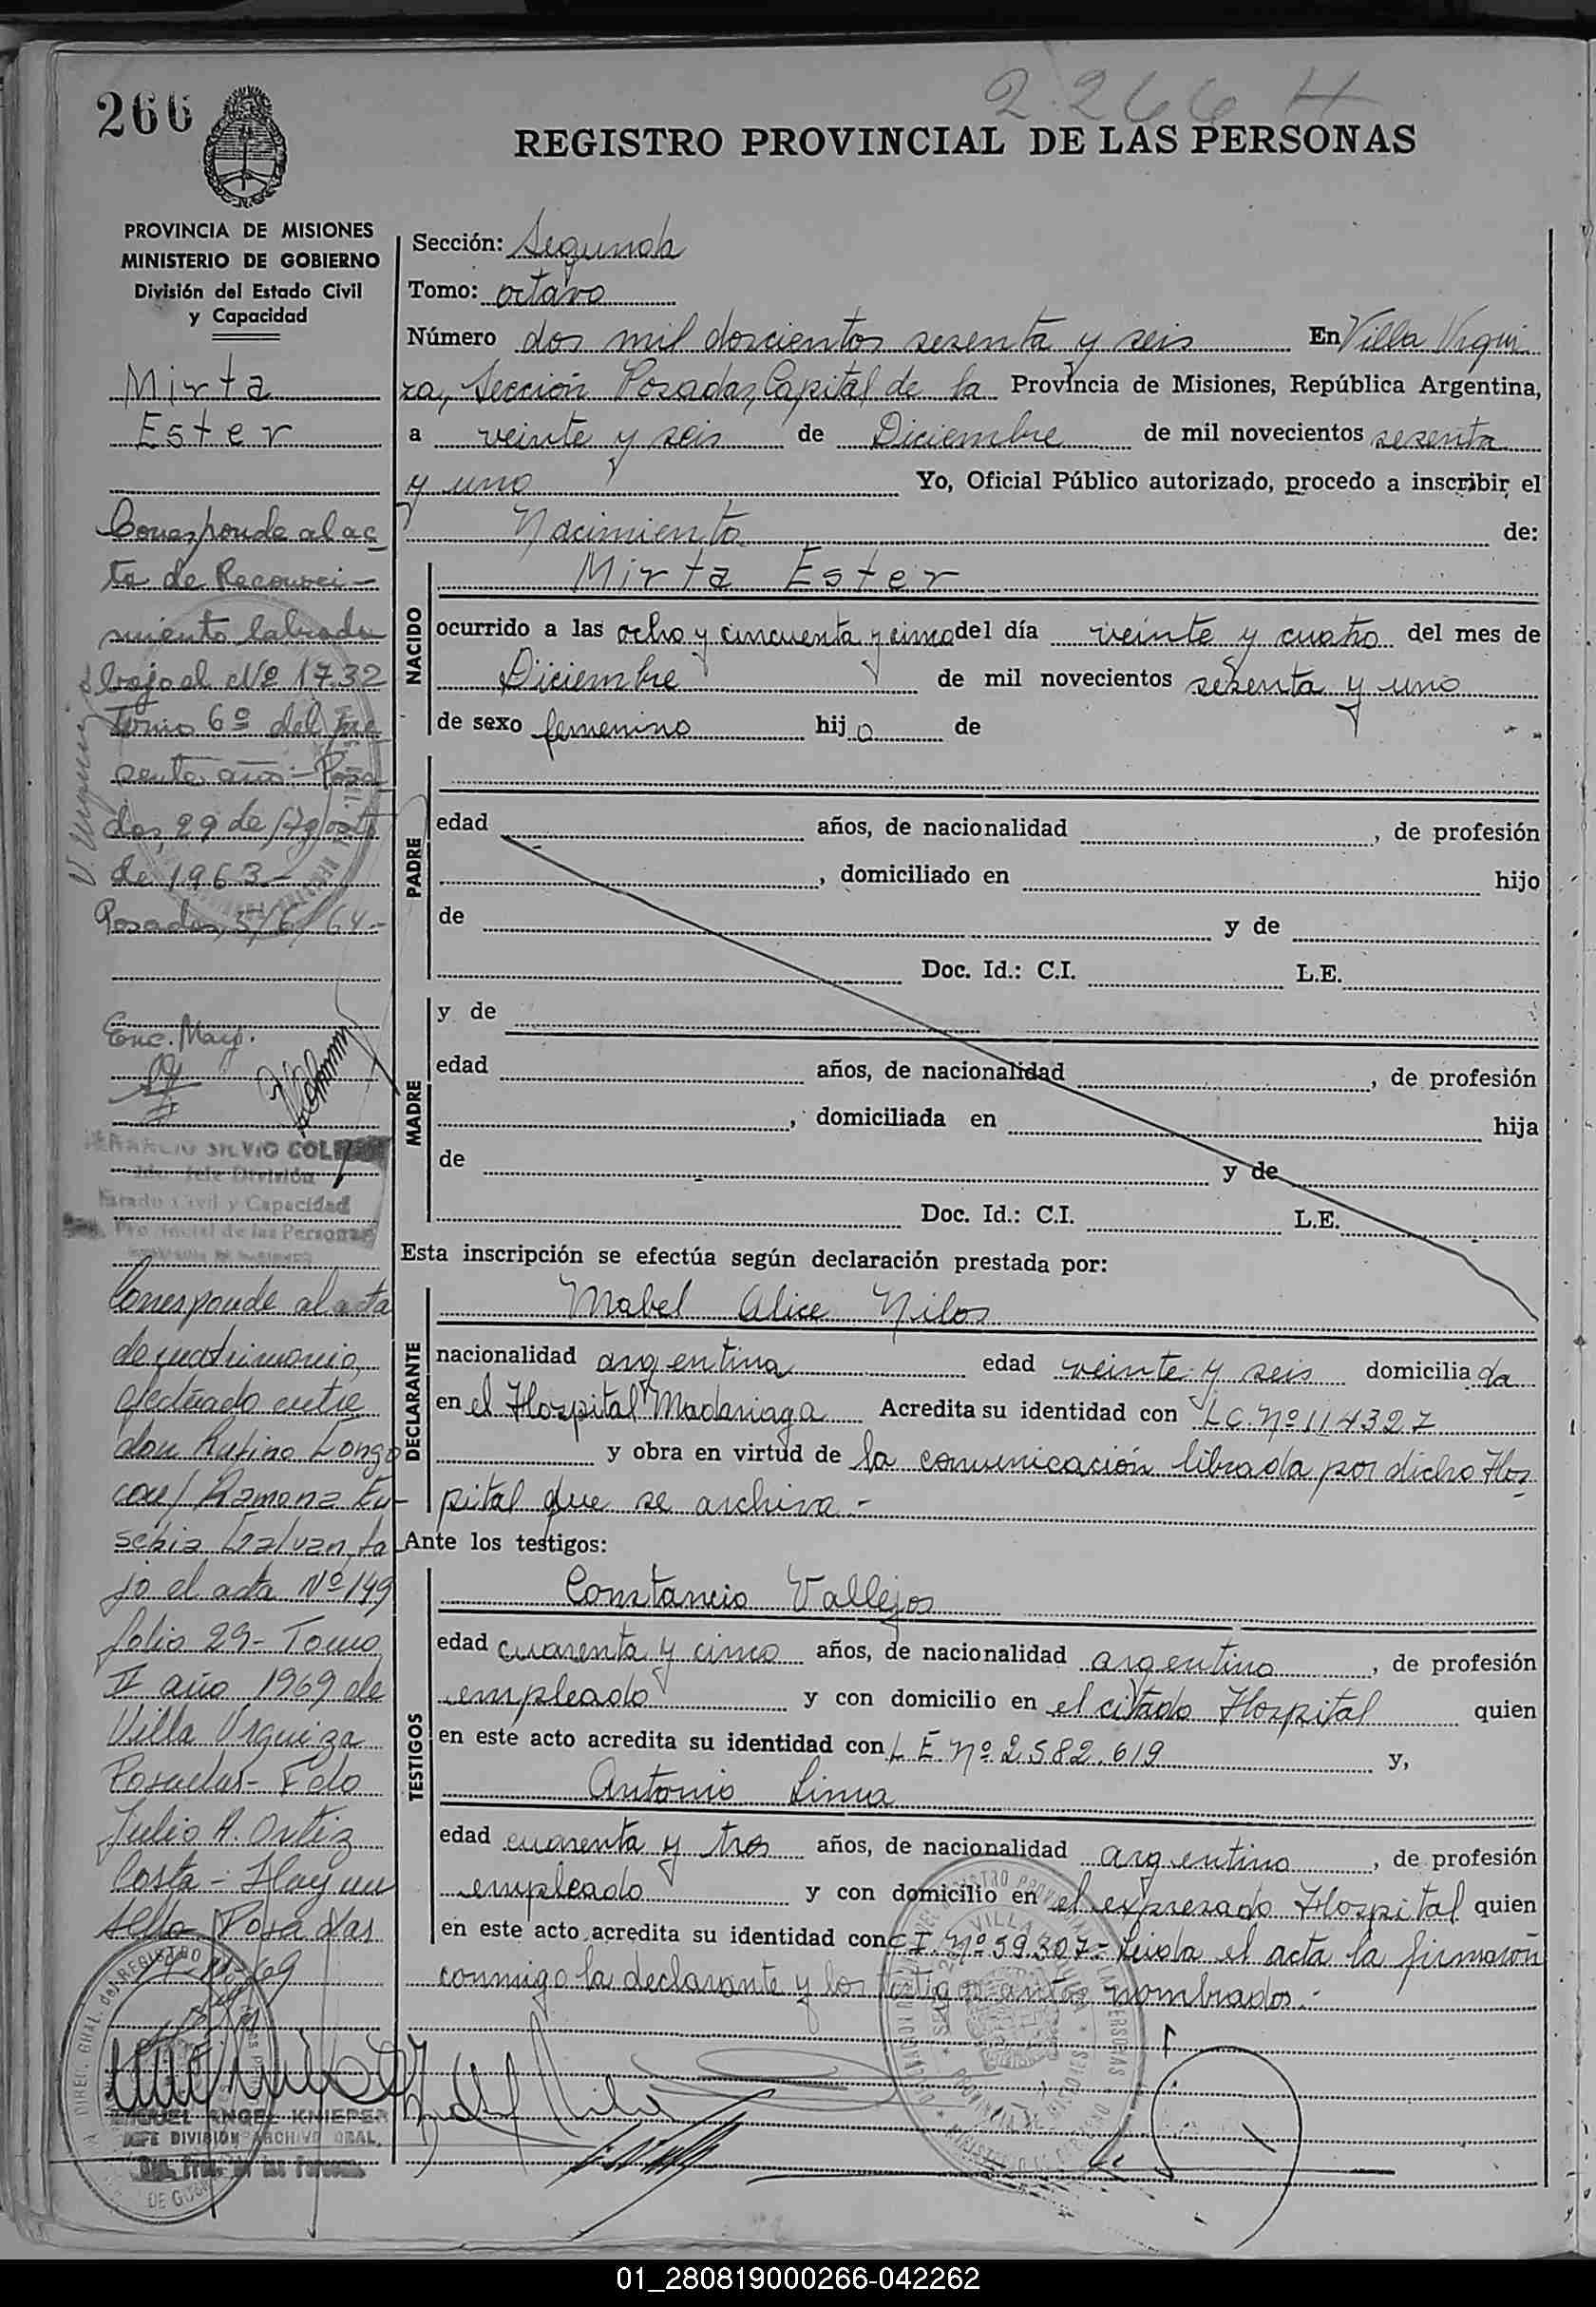 2266 H
266
REGISTRO PROVINCIAL DE LAS PERSONAS
PROVINCIA DE MISIONES
MINISTERIO DE GOBIERNO
División del Estado Civil
y Capacidad
Mirta
Ester
Corresponde al ac
ta de Reconoci-
miento labrada
bajo el Nº 1732
Tomo 6º del pre
sente año:- Posa
das, 29 de Agosto
de 1963.-
Posadas, 5/6/64.-
V. Urquiza
Enc. Mayo.
SILVIO
Jefe División
Estado Civil y Capacidad
Provincial de las Personas
Corresponde al acta
de matrimonio,
efectuado entre
don Rufino Longo
con/ Ramona Eu-
sebia Galvan, ba
jo el acta Nº 149
folio 29- Tomo
II año 1969 de
Villa Urquiza
Posadas- Fdo
Julio A. Ortiz
Costa- Hay un
sello Posadas
MIGUEL ANGEL KNIEPER
JEFE DIVISION ARCHIVO GRAL.
Reg. Prov. de las Personas
Sección: Segunda
Tomo: octavo
Número dos mil doscientos sesenta y seis En Villa Urqui
za, Sección Posadas, Capital de la Provincia de Misiones, República Argentina,
a veinte y seis de Diciembre de mil novecientos sesenta
y uno Yo, Oficial Público autorizado, procedo a inscribir el
Nacimiento de:
NACIDO
Mirta Ester
ocurrido a las ocho y cincuenta y cinco del día veinte y cuatro del mes de
Diciembre de mil novecientos sesenta y uno
de sexo femenino hij a de
PADRE
edad años, de nacionalidad , de profesión
, domiciliado en hijo
de y de
Doc. Id.: C.I. L.E.
MADRE
y de
edad años, de nacionalidad , de profesión
, domiciliada en hija
de y de
Doc. Id.: C.I. L.E.
Esta inscripción se efectúa según declaración prestada por:
DECLARANTE
Mabel Alice Nilos
nacionalidad argentina edad veinte y seis domicilia da
en el Hospital Madariaga Acredita su identidad con LC. Nº 114327
y obra en virtud de la comunicación librada por dicho Hos
pital que se archiva.-
Ante los testigos:
TESTIGOS
Constancio Vallejos
edad cuarenta y cinco años, de nacionalidad argentino , de profesión
empleado y con domicilio en el citado Hospital quien
en este acto acredita su identidad con L E. Nº 2.582.619 y,
Antonio Lima
edad cuarenta y tres años, de nacionalidad argentino , de profesión
empleado y con domicilio en el expresado Hospital quien
en este acto acredita su identidad con C I. Nº 59.307- Leída el acta la firmaron
conmigo la declarante y los testigos antes nombrados.-
01_280819000266-042262